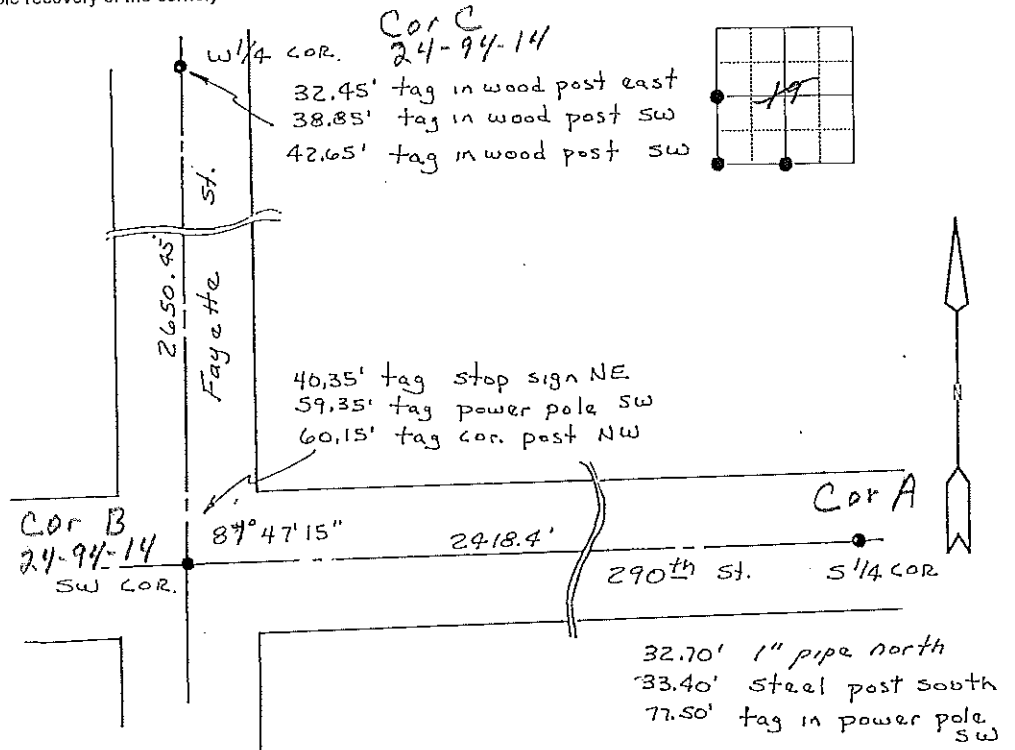 Cor C
24-94-14
W 1/4 COR.
32.45' tag in wood post east
38.85' tag in wood post SW
42.65' tag in wood post SW
19
2650.45'
Fayette St.
40.35' tag stop sign NE
59.35' tag power pole SW
60.15' tag cor. post NW
N
Cor A
Cor B
24-94-14
SW COR.
47'15"
2418.4'
290th St.
S 1/4 COR
32.70' 1" pipe north
33.40' steel post south
77.50' tag in power pole
SW